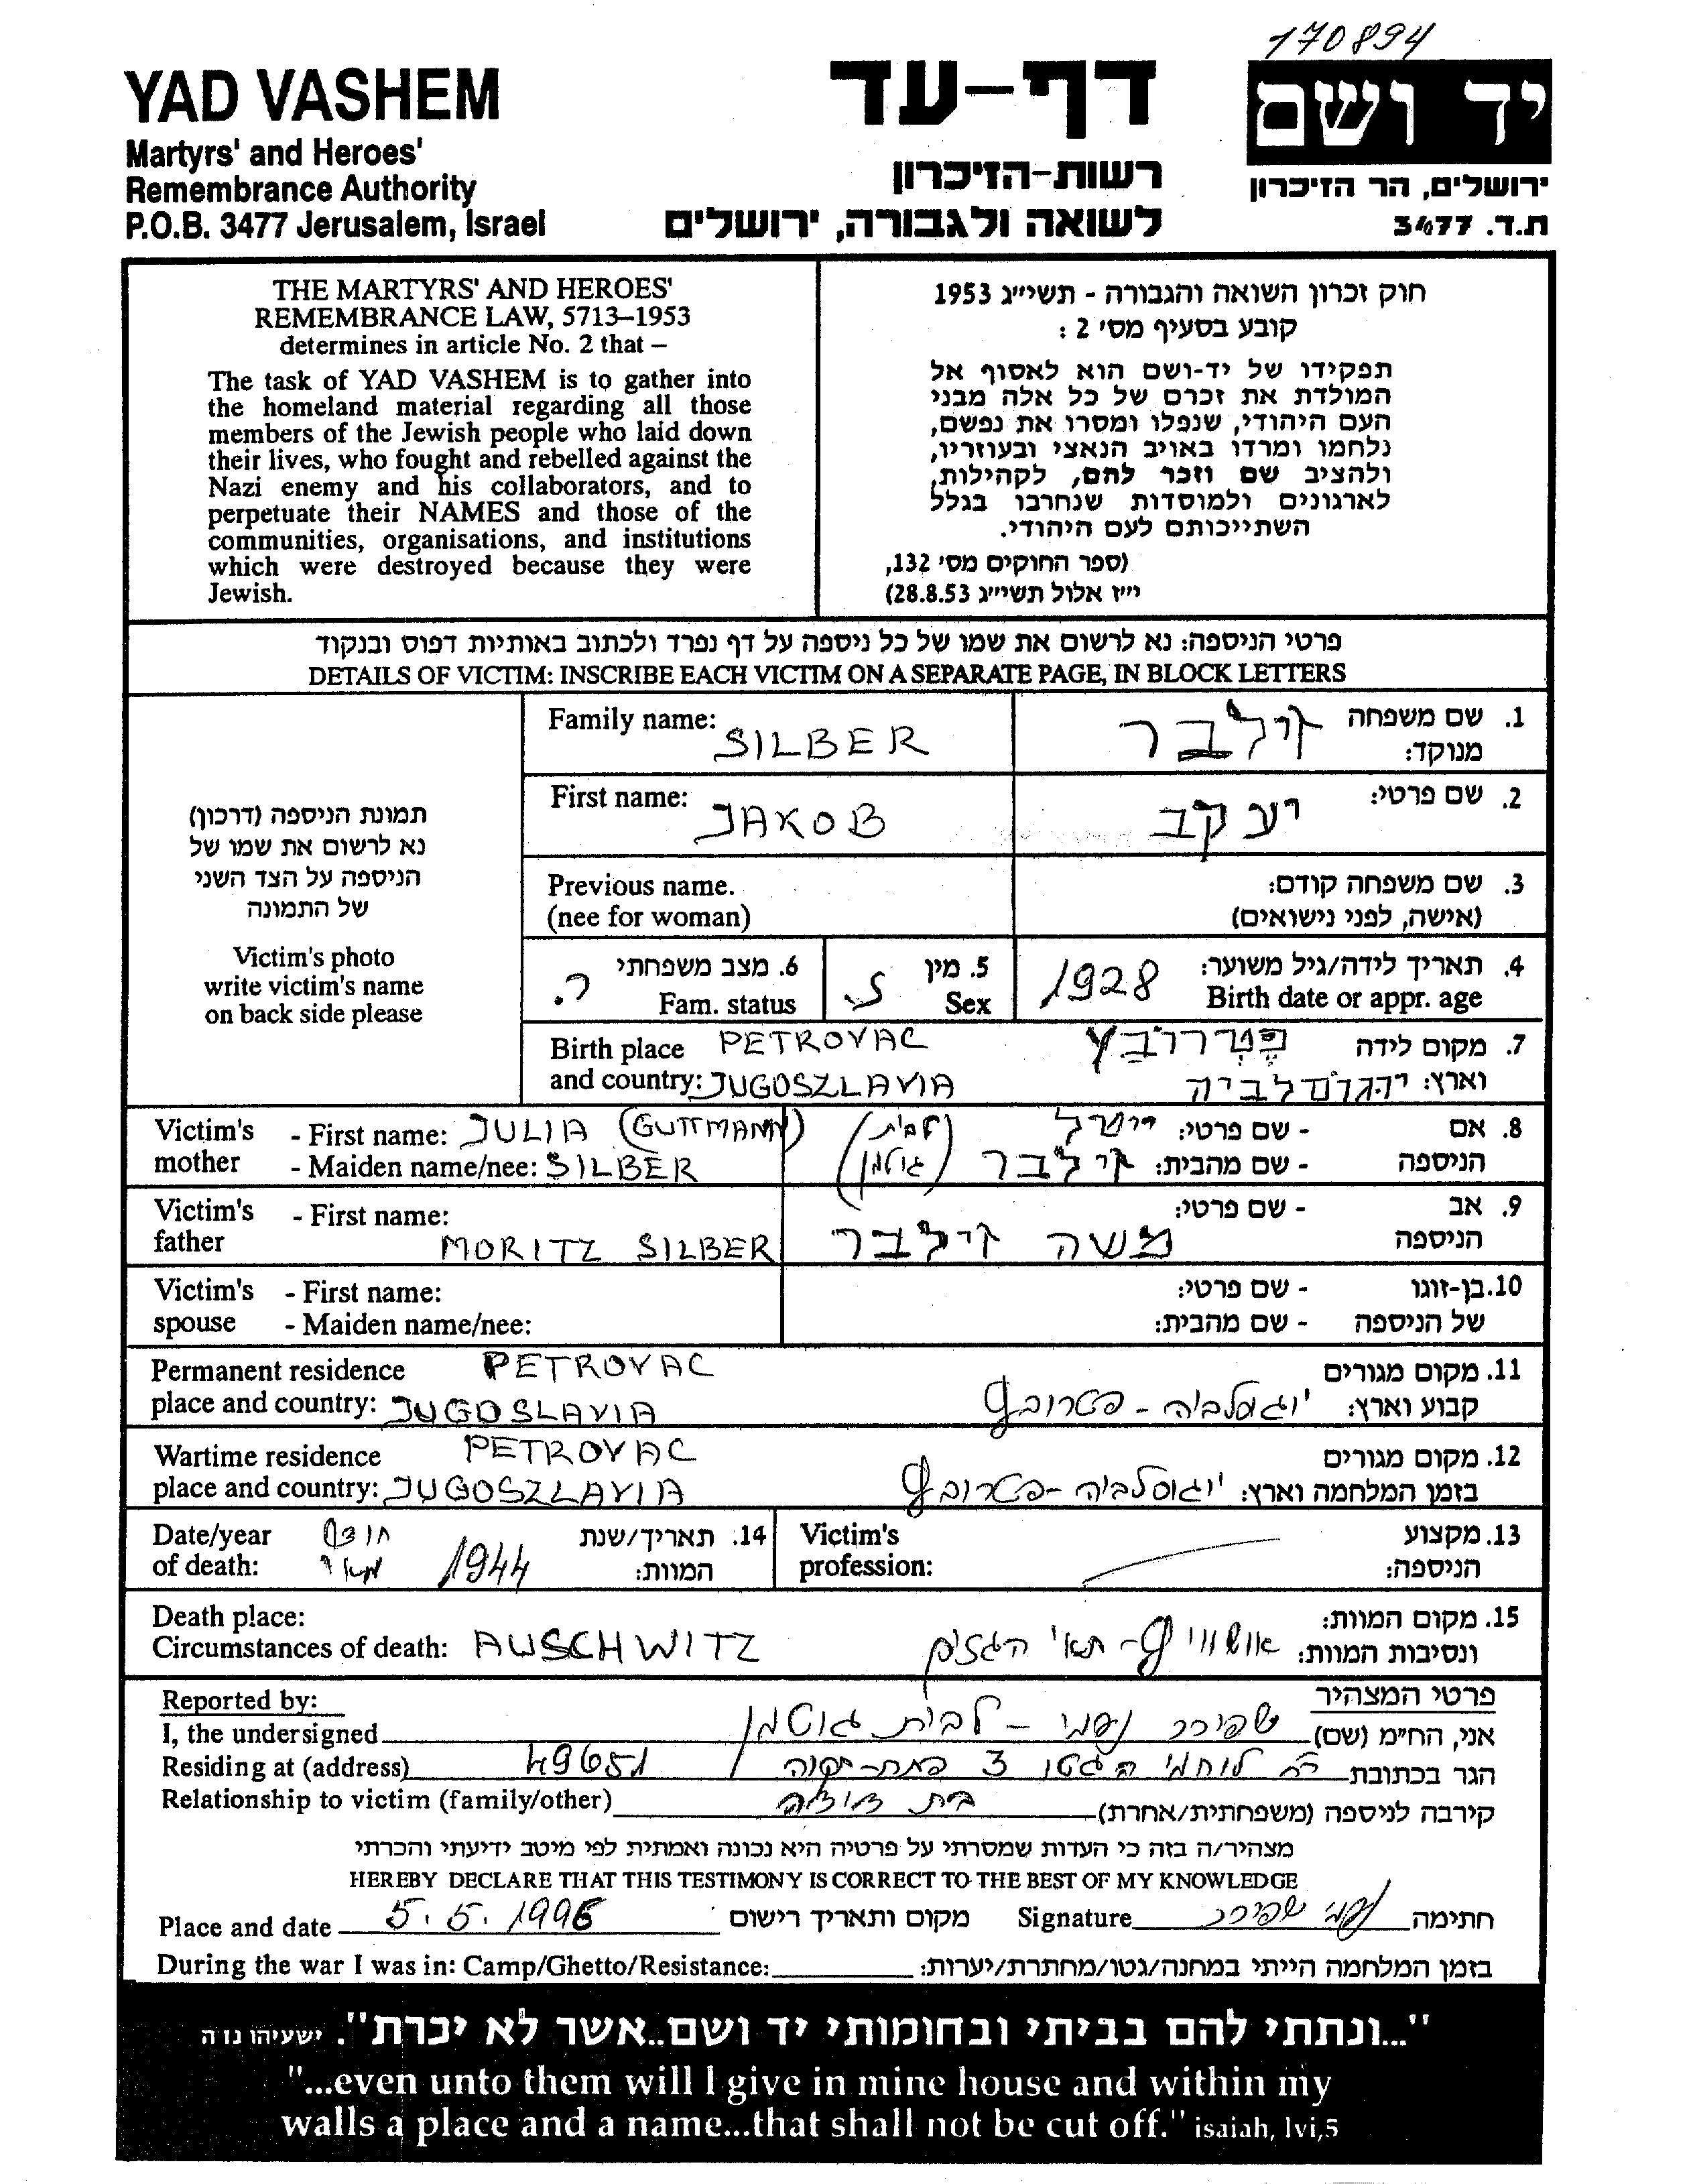 170894
YAD VASHEM
Martyrs' and Heroes'
Remembrance Authority
P.O.B. 3477 Jerusalem, Israel
דף-עד
רשות-הזיכרון
לשואה ולגבורה, ירושלים
יד ושם
ירושלים, הר הזיכרון
ת.ד. 3477
THE MARTYRS' AND HEROES'
REMEMBRANCE LAW, 5713–1953
determines in article No. 2 that –
The task of YAD VASHEM is to gather into
the homeland material regarding all those
members of the Jewish people who laid down
their lives, who fought and rebelled against the
Nazi enemy and his collaborators, and to
perpetuate their NAMES and those of the
communities, organisations, and institutions
which were destroyed because they were
Jewish.
חוק זכרון השואה והגבורה - תשי״ג 1953
קובע בסעיף מס׳ 2 :
תפקידו של יד-ושם הוא לאסוף אל
המולדת את זכרם של כל אלה מבני
העם היהודי, שנפלו ומסרו את נפשם,
נלחמו ומרדו באויב הנאצי ובעוזריו,
ולהציב שם וזכר להם, לקהילות,
לארגונים ולמוסדות שנחרבו בגלל
השתייכותם לעם היהודי.
(ספר החוקים מס׳ 132,
י״ז אלול תשי״ג 28.8.53)
פרטי הניספה: נא לרשום את שמו של כל ניספה על דף נפרד ולכתוב באותיות דפוס ובנקוד
DETAILS OF VICTIM: INSCRIBE EACH VICTIM ON A SEPARATE PAGE, IN BLOCK LETTERS
תמונת הניספה (דרכון)
נא לרשום את שמו של
הניספה על הצד השני
של התמונה
Victim's photo
write victim's name
on back side please
Family name: SILBER זילבר 1. שם משפחה
מנוקד:
First name: JAKOB יעקב 2. שם פרטי:
Previous name. 3. שם משפחה קודם:
(nee for woman) (אישה, לפני נישואים)
6. מצב משפחתי ר. 5. מין ז. 1928 4. תאריך לידה/גיל משוער:
Fam. status Sex Birth date or appr. age
Birth place PETROVAC פטרובץ 7. מקום לידה
and country: JUGOSZLAVIA יוגוסלביה וארץ:
Victim's - First name: JULIA (GUTTMANN) (לבית - שם פרטי: 8. אם
mother - Maiden name/nee: SILBER גוטמן) זילבר - שם מהבית: הניספה
Victim's - First name: - שם פרטי: 9. אב
father MORITZ SILBER משה זילבר הניספה
Victim's - First name: - שם פרטי: 10. בן-זוגו
spouse - Maiden name/nee: - שם מהבית: של הניספה
Permanent residence PETROVAC 11. מקום מגורים
place and country: JUGOSLAVIA יוגוסלביה - פטרובץ קבוע וארץ:
Wartime residence PETROVAC 12. מקום מגורים
place and country: JUGOSZLAVIA יוגוסלביה - פטרובץ בזמן המלחמה וארץ:
Date/year חודש 14. תאריך/שנת Victim's 13. מקצוע
of death: 1944 המוות: profession: הניספה:
Death place: 15. מקום המוות:
Circumstances of death: AUSCHWITZ אושוויץ - תאי הגזים ונסיבות המוות:
Reported by: פרטי המצהיר
I, the undersigned שפירר נעמי - לבית גוטמן אני, הח״מ (שם)
Residing at (address) 49651 לוחמי הגטו 3 פתח-תקוה הגר בכתובת
Relationship to victim (family/other) בת דודה קירבה לניספה (משפחתית/אחרת)
מצהיר/ה בזה כי העדות שמסרתי על פרטיה היא נכונה ואמתית לפי מיטב ידיעתי והכרתי
HEREBY DECLARE THAT THIS TESTIMONY IS CORRECT TO THE BEST OF MY KNOWLEDGE
Place and date 5.5.1996 מקום ותאריך רישום Signature נעמי שפירר חתימה
During the war I was in: Camp/Ghetto/Resistance: בזמן המלחמה הייתי במחנה/גטו/מחתרת/יערות:
"...ונתתי להם בביתי ובחומותי יד ושם..אשר לא יכרת". ישעיהו נו ה
"...even unto them will I give in mine house and within my
walls a place and a name...that shall not be cut off." isaiah, lvi,5